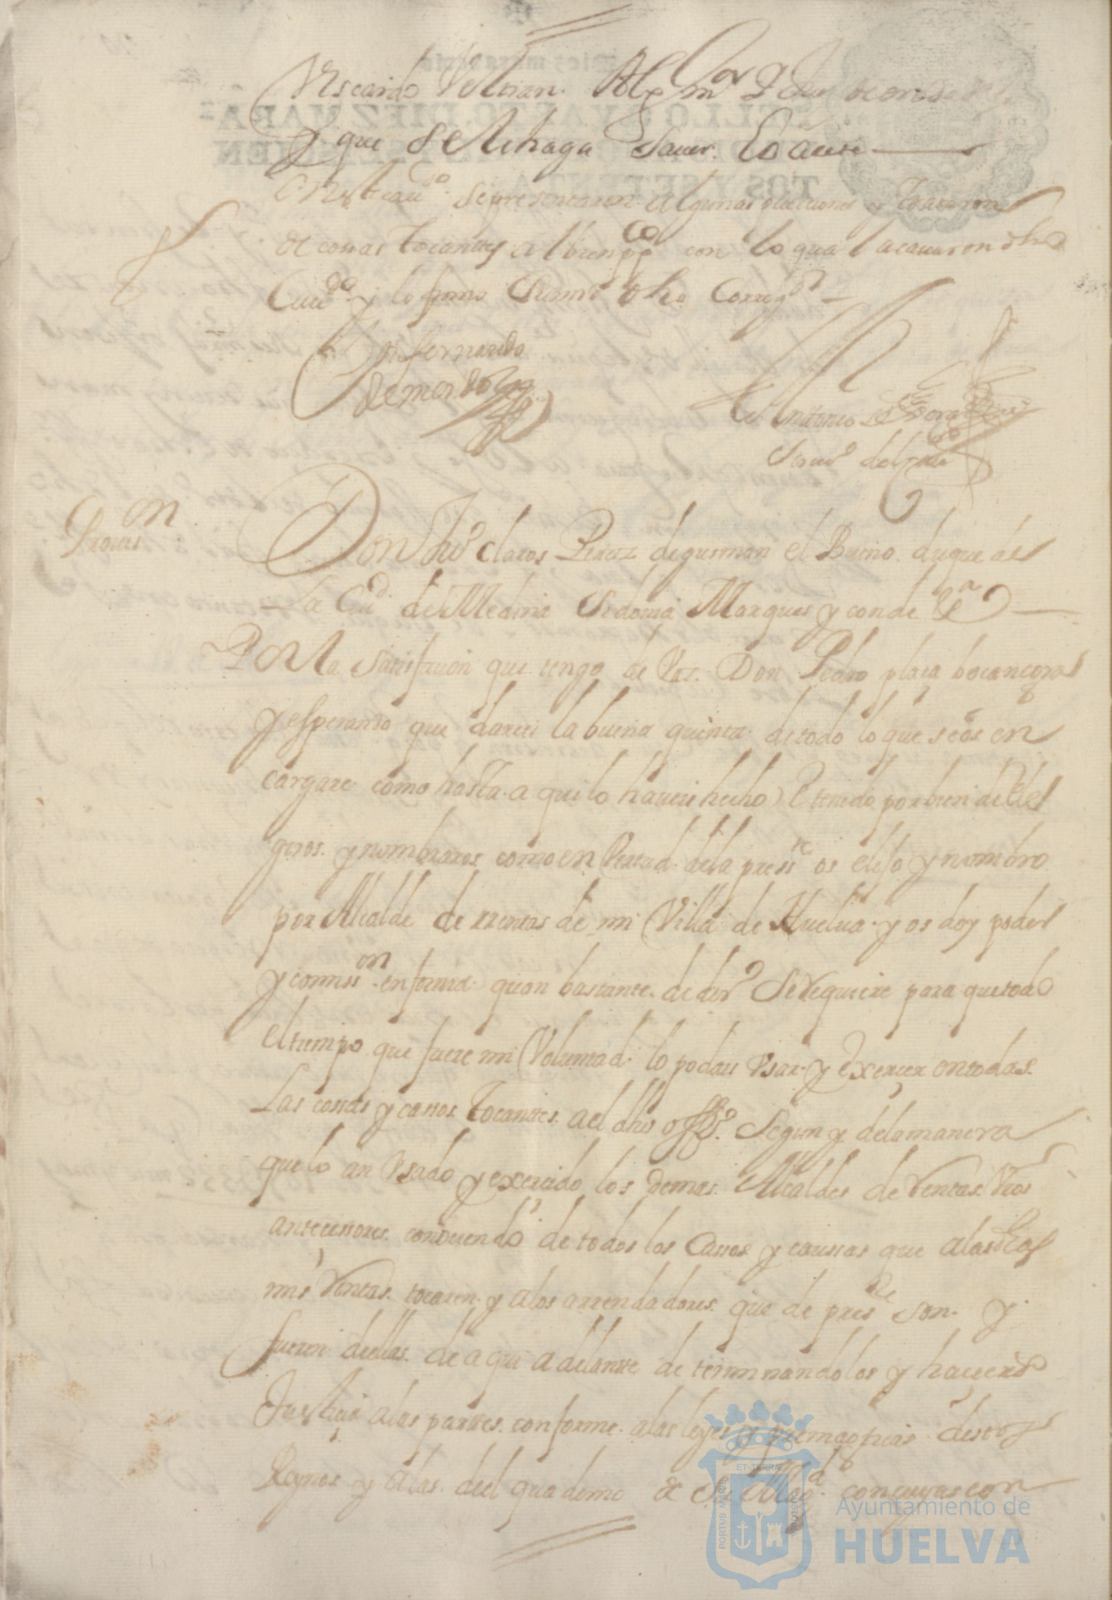 Ricardo Veltran Alg.r m.r
y que se le haga saver lo acete
En este cavdo se presentaron algunas peticiones y trataron
de cosas tocantes al bien pp.co con lo qual acavaron dho
Cavdo y lo firmo el Señor dho Corregor
Don fernando
de mendoza
Antonio de
Scriv.o del cavdo
Provis.on
Don Juo claros Perez de guzman el Bueno duque de
la Ciud de Medina Sidonia Marques y conde &a
Por la satisfacion que tengo de Vos Don Pedro plaça bocanegra
y esperando que dareis la buena quenta de todo lo que se os en
cargare como hasta aqui lo haveis hecho E tenido por bien de Ele
giros y nombraros como en Virtud dela press.te os elijo y nombro
por Alcalde de rrentas de mi Villa de Huelva y os doy poder
y comiss.on en forma quan bastante de dr.o Se requiere para que todo
el tiempo que fuere mi Voluntad lo podais Usar y Exercer en todas
Las cosas y casos tocantes a el dho off.o Segun y de la manera
que lo an Usado y exercido los demas Alcaldes de Rentas Vros
antecesores conociendo de todos los Casos y causas que a las dhas
mis Rentas tocaren y a los arrendadores que de pres.te son y
fueren dellas de aqui adelante determinandolos y haciendo
Justiçia a las partes conforme a las leyes y prematicas destos
Reynos y a las del quaderno de Su Mag.d con cuyas con
ET TERRÆ
PORTUS MARIS
CUSTODIA
Ayuntamiento de
HUELVA